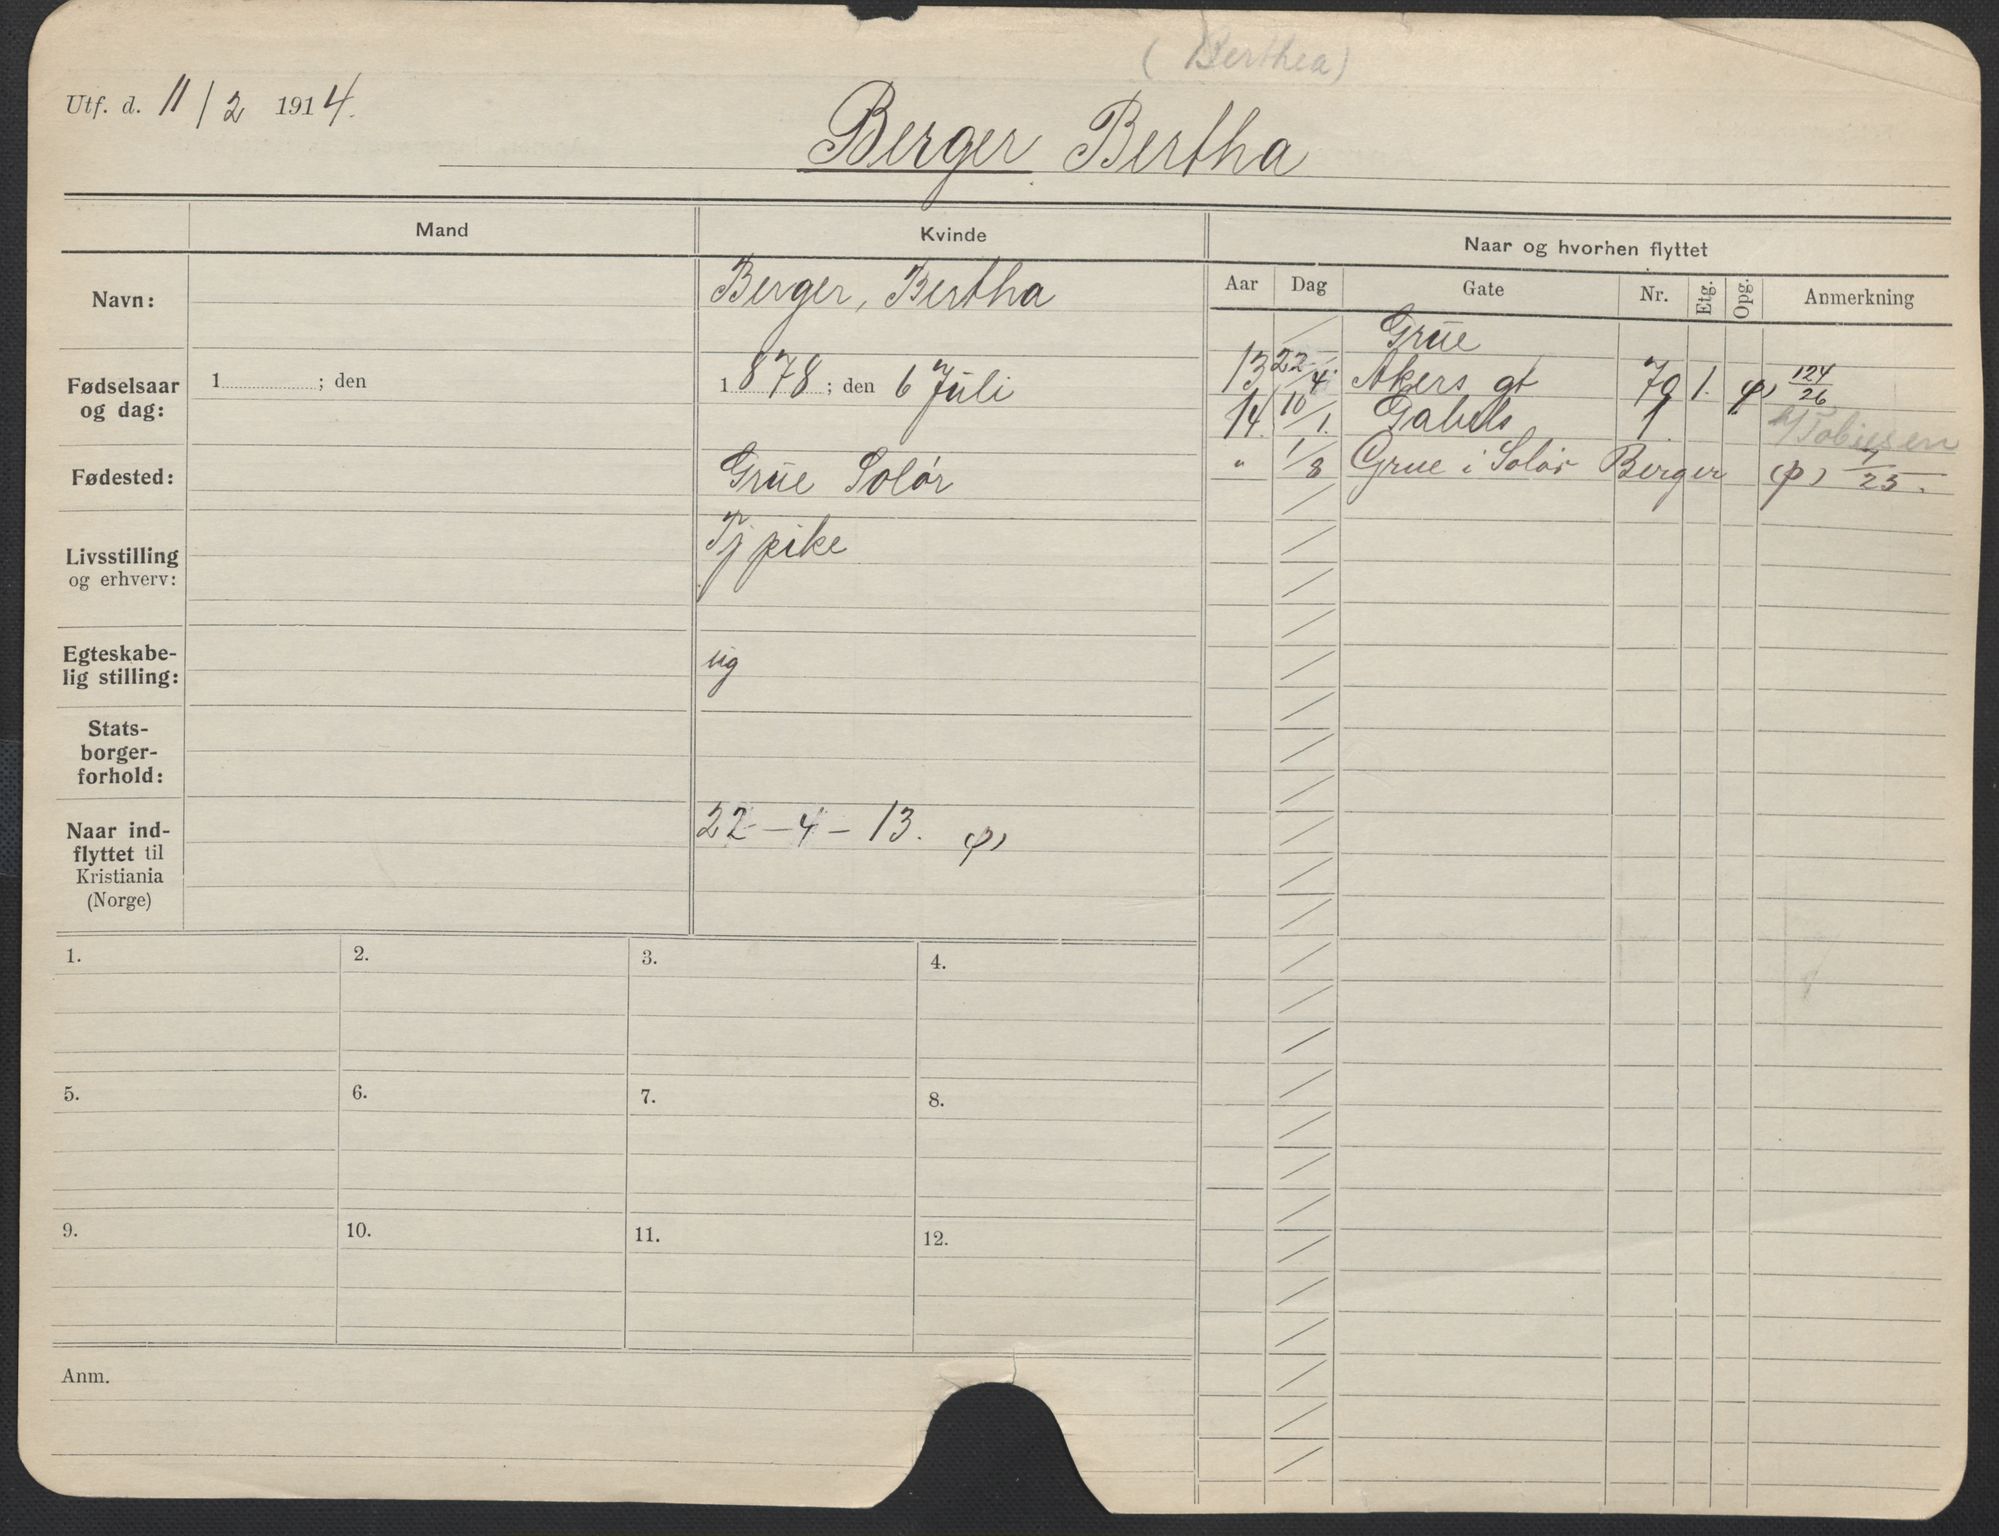 (Berthea)
Utf. d. 11/2 1914.
Berger Bertha
Mand
Kvinde
Naar og hvorhen flyttet
Aar Dag Gate Nr. Etg. Opg. Anmerkning
Navn:
Berger, Bertha
Fødselsaar og dag:
1 ; den
1878; den 6 Juli
Fødested:
Grue Solør
Livsstilling
og erhverv:
Tj pike
Egteskabe-
lig stilling:
ug
Stats-
borger-
forhold:
Naar ind-
flyttet til
Kristiania
(Norge)
22-4-13. φ)
Grue
13 22/4. Akers gt 79 1. φ) 124/26
14. 10/1. Gabels 1. h/Tobiesen
" 1/8 Grue i Solør Berger (p) 7/25.
1. 2. 3. 4.
5. 6. 7. 8.
9. 10. 11. 12.
Anm.